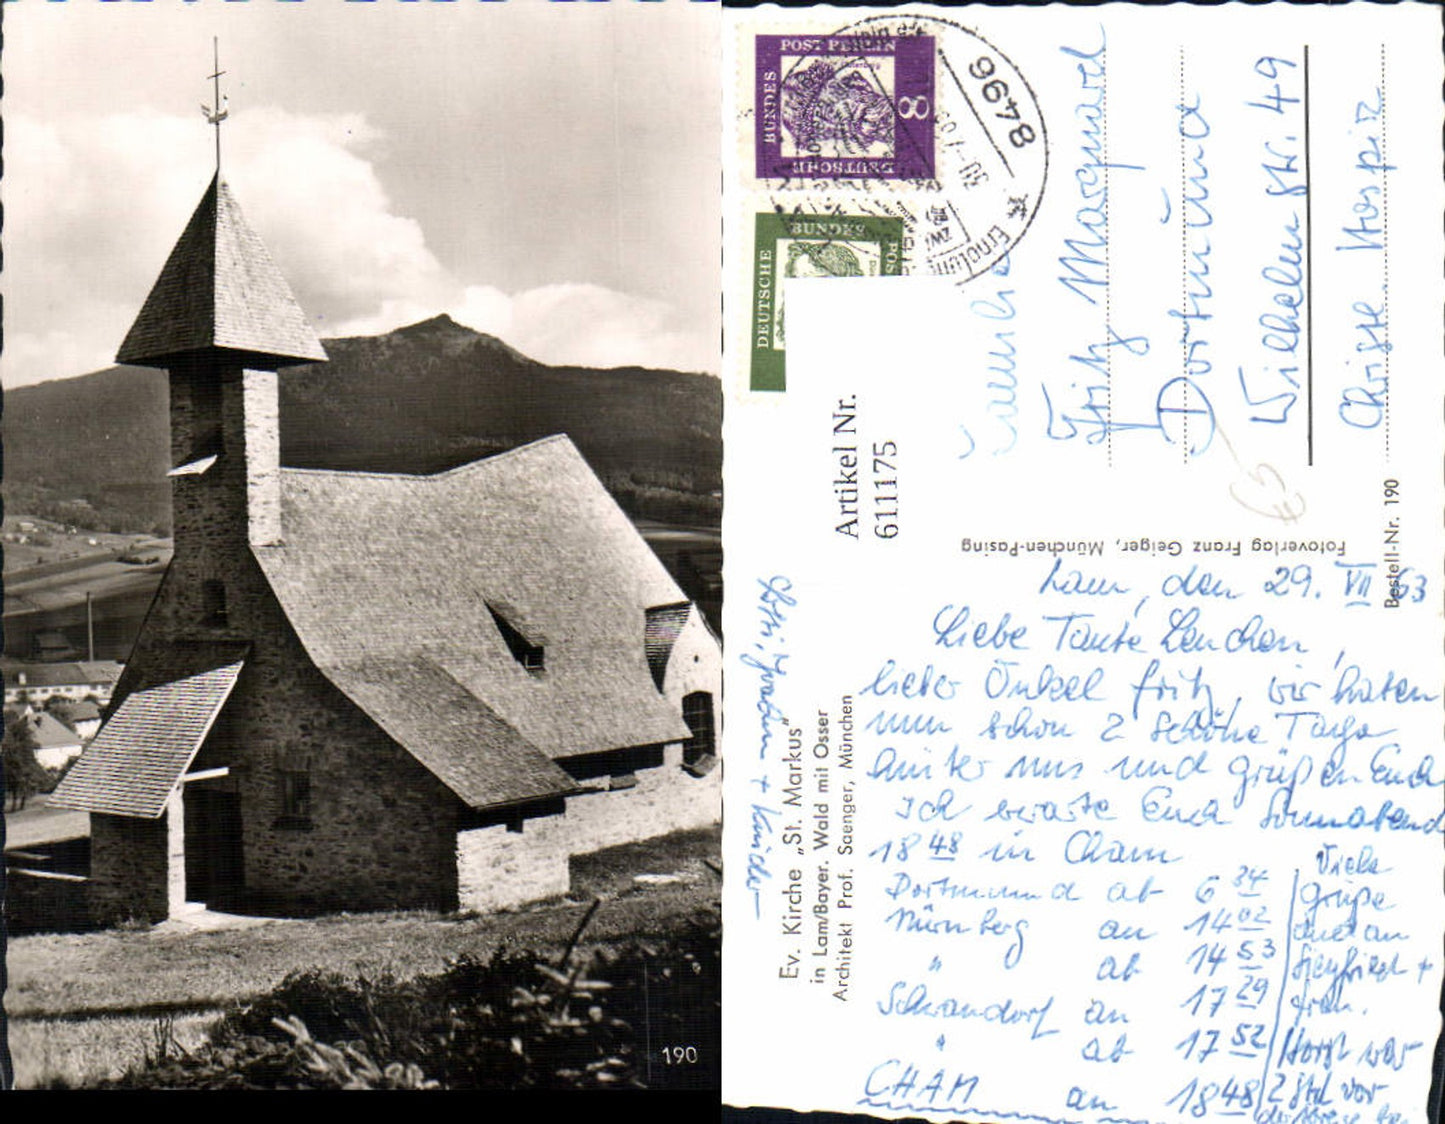 190
POST BERLIN
BUNDES
8
DEUTSCHE
BUNDES
POS
DEUTSCHE
8496
Familie
Fritz Marquard
Dortmund
Wilhelm str. 49
Christl. Hospiz
Artikel Nr.
611175
Bestell-Nr. 190
Fotoverlag Franz Geiger, München-Pasing
Ev. Kirche „St. Markus"
in Lam/Bayer. Wald mit Osser
Architekt Prof. Saenger, München
Lam, den 29. VII 63
Liebe Tante Lenchen,
lieber Onkel Fritz, wir haben
nun schon 2 schöne Tage
hinter uns und grüßen Euch
Ich erwarte Euch Sonnabend
18 48 in Cham
Dortmund ab 6 34
Nürnberg an 14 02
" ab 14 53
Schwandorf an 17 29
" ab 17 52
CHAM an 18 48
Viele
Grüße
auch an
Siegfried +
Frau.
Horst war
2 Std vor
+ Kinder